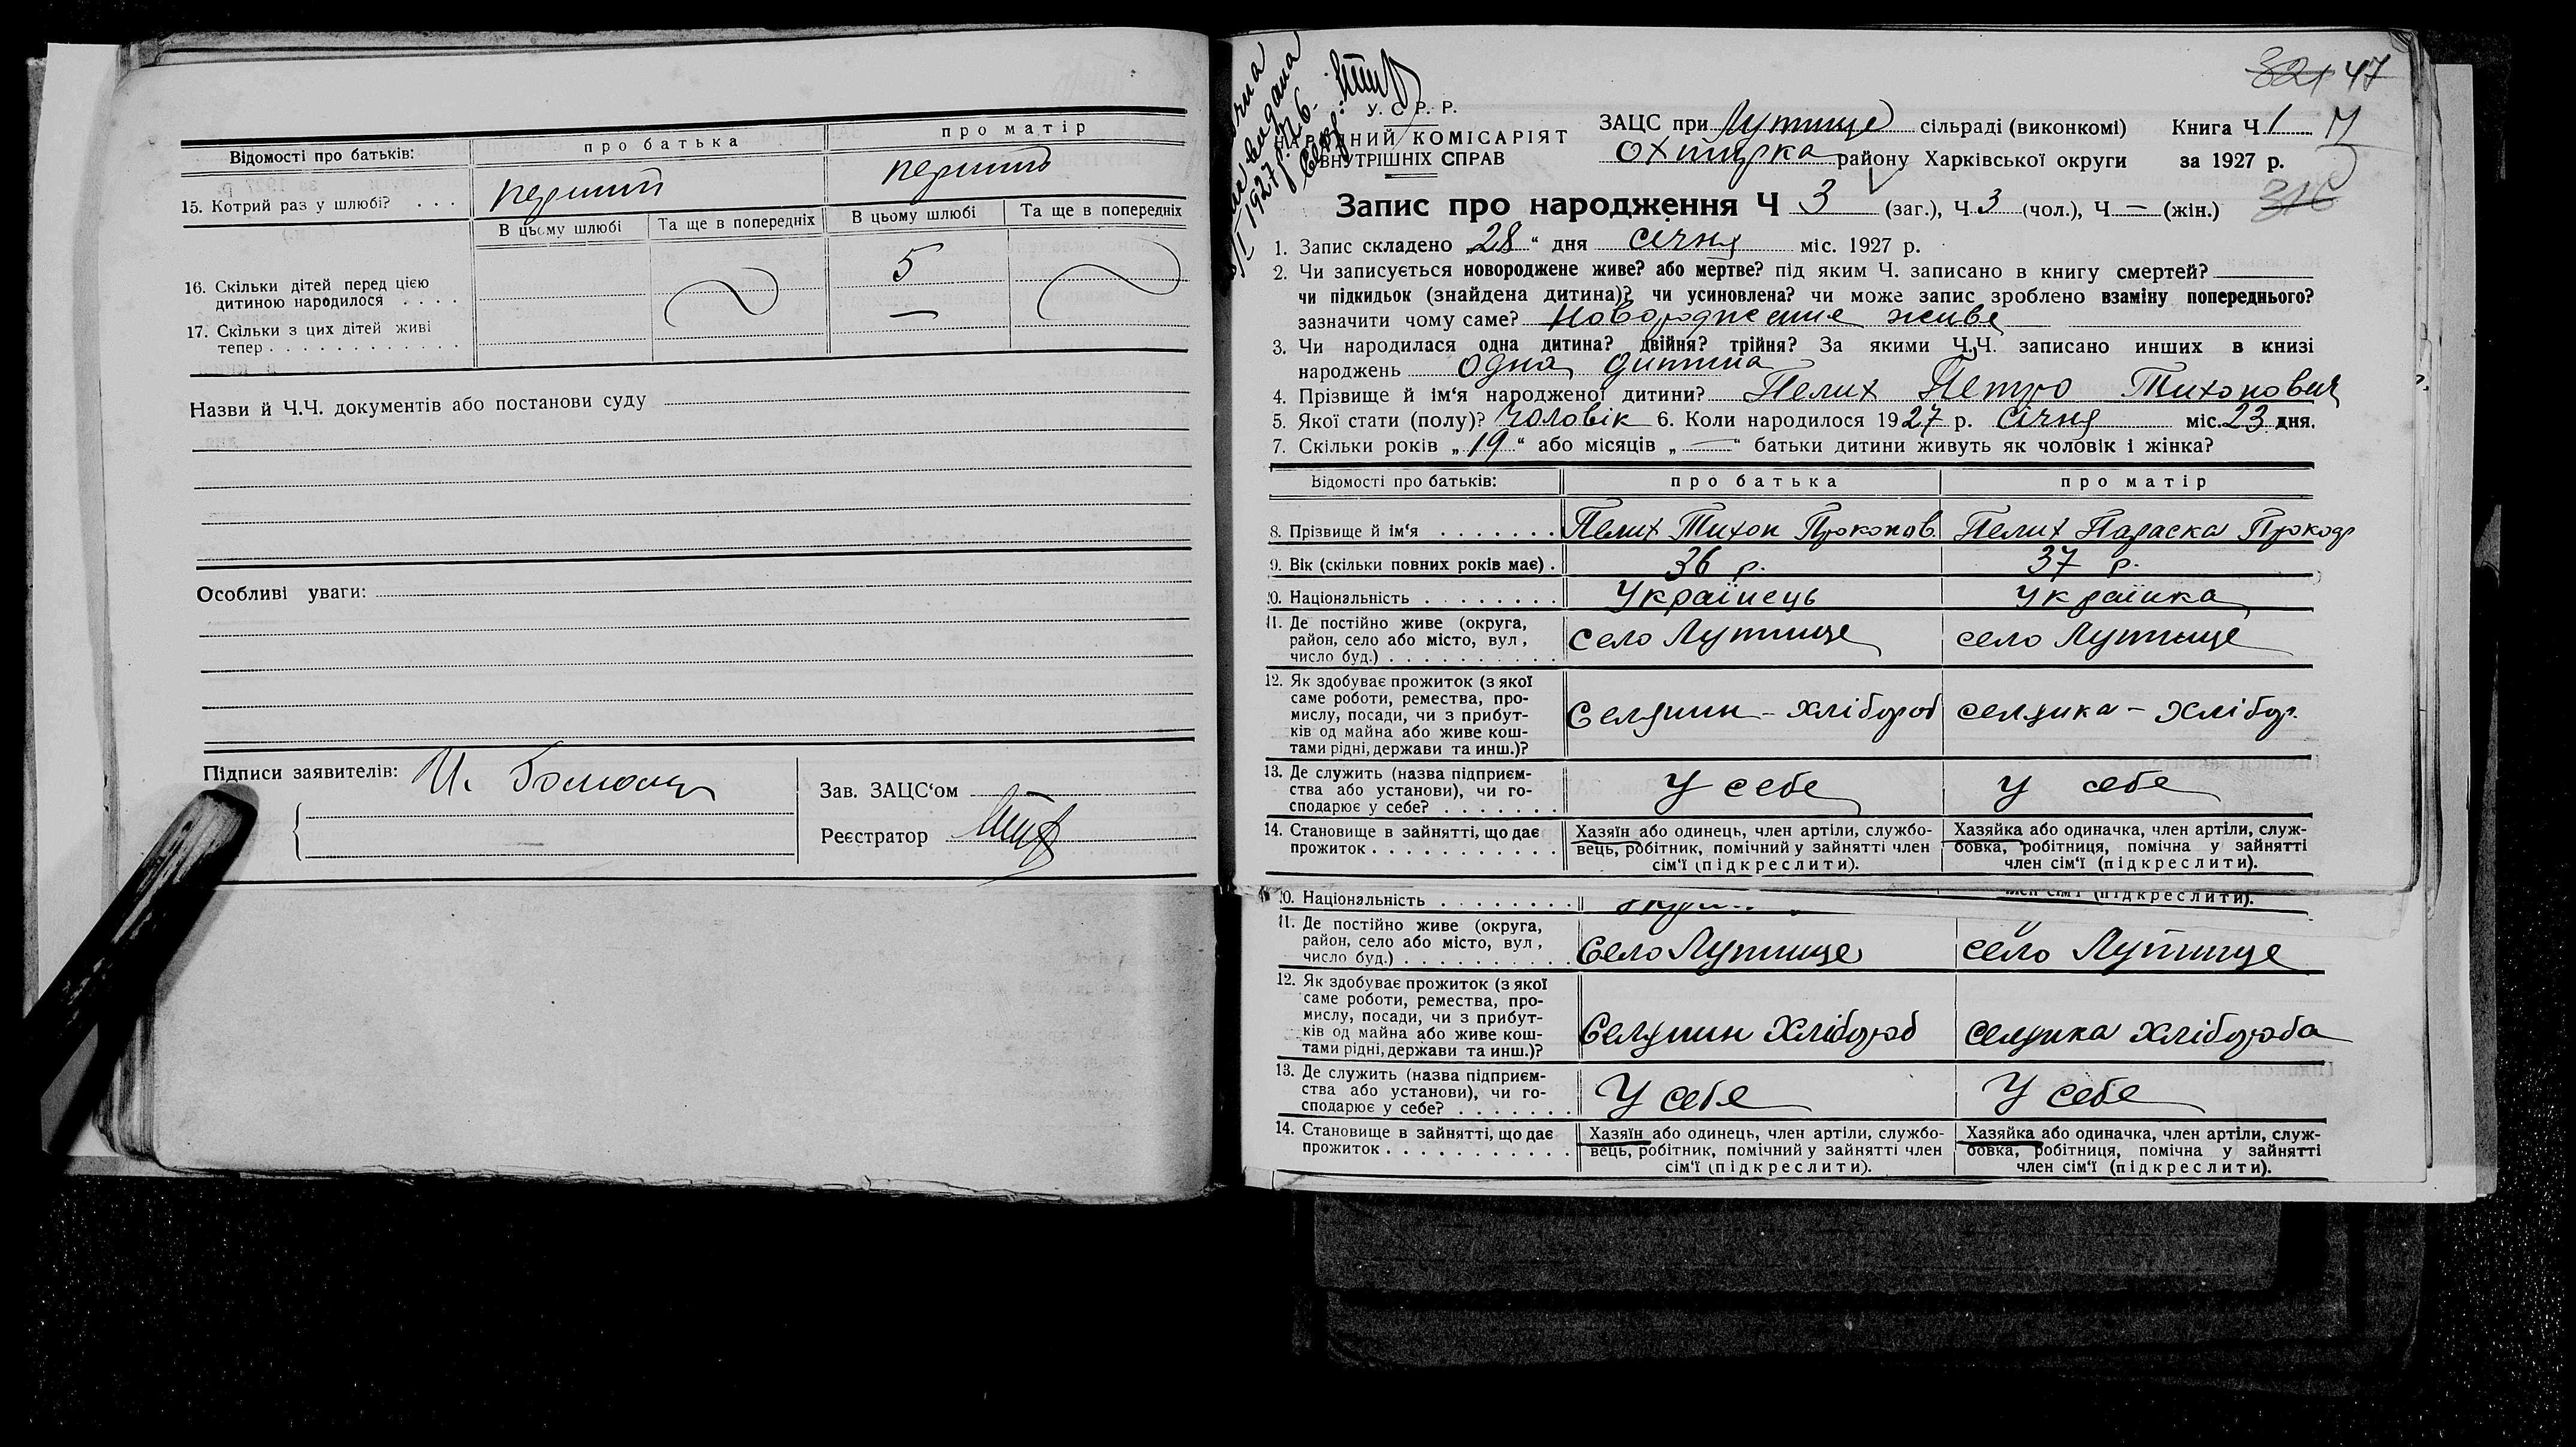 Відомості про батьків:
про батька
про матір
15. Котрий раз у шлюбі? . . .
перший
В цьому шлюбі
Та ще в попередніх
В цьому шлюбі
Та ще в попередніх
16. Скільки дітей перед цією
дитиною народилося . . . .
5
17. Скільки з цих дітей живі
тепер . . . . . . . . . . . .
—
Назви й Ч.Ч. документів або постанови суду
Особливі уваги:
Підписи заявителів:
Зав. ЗАЦС‘ом —
Реєстратор
321 47
У. С. Р. Р.
НИЙ КОМІСАРІЯТ
ВНУТРІШНІХ СПРАВ
ЗАЦС при Лутище сільраді (виконкомі) Книга Ч 1
Охтирка району Харківської округи за 1927 р.
316
Запис про народження Ч 3 (заг.), Ч 3 (чол.), Ч — (жін.)
1. Запис складено „28“ дня січня міс. 1927 р.
2. Чи записується новороджене живе? або мертве? під яким Ч. записано в книгу смертей?
чи підкидьок (знайдена дитина)? чи усиновлена? чи може запис зроблено взаміну попереднього?
зазначити чому саме? живе
3. Чи народилася одна дитина? двійня? трійня? За якими Ч.Ч. записано инших в книзі
народжень одна дитина
4. Прізвище й ім‘я народженої дитини? Пелих Петро Тихонович
5. Якої стати (полу)? Чоловік 6. Коли народилося 1927 р. Січня міс. 23 дня.
7. Скільки років „19“ або місяців „—“ батьки дитини живуть як чоловік і жінка?
Відомості про батьків:
про батька
про матір
8. Прізвище й ім‘я . . . . . . .
Пелих Тихон Прокопов.
Пелих Параска
9. Вік (скільки повних років має) .
36 р.
37 р.
0. Національність . . . . . . . .
Українець
Українка
11. Де постійно живе (округа,
район, село або місто, вул,
число буд.) . . . . . . . . . .
Село Лутище
село Лутище
12. Як здобуває прожиток (з якої
саме роботи, ремества, про-
мислу, посади, чи з прибут-
ків од майна або живе кош-
тами рідні, держави та инш.)?
Селянин - хлібороб
селянка - хлібор.
13. Де служить (назва підприєм-
ства або установи), чи го-
сподарює у себе? . . . . . . .
У себе
У себе
14. Становище в зайнятті, що дає
прожиток . . . . . . . . . . .
Хазяїн або одинець, член артіли, службо-
вець, робітник, помічний у зайнятті член
сім‘ї (підкреслити).
Хазяйка або одиначка, член артіли, служ-
бовка, робітниця, помічна у зайнятті
член сім‘ї (підкреслити).
член сім‘ї (підкреслити).
0. Національність . . . . . . . .
11. Де постійно живе (округа,
район, село або місто, вул,
число буд.) . . . . . . . . . .
Село Лутище
село Лутище
12. Як здобуває прожиток (з якої
саме роботи, ремества, про-
мислу, посади, чи з прибут-
ків од майна або живе кош-
тами рідні, держави та инш.)?
Селянин Хлібороб
селянка хлібороба
13. Де служить (назва підприєм-
ства або установи), чи го-
сподарює у себе? . . . . . . .
У себе
У себе
14. Становище в зайнятті, що дає
прожиток . . . . . . . . . . .
Хазяїн або одинець, член артіли, службо-
вець, робітник, помічний у зайнятті член
сім‘ї (підкреслити).
Хазяйка або одиначка, член артіли, служ-
бовка, робітниця, помічна у зайнятті
член сім‘ї (підкреслити).